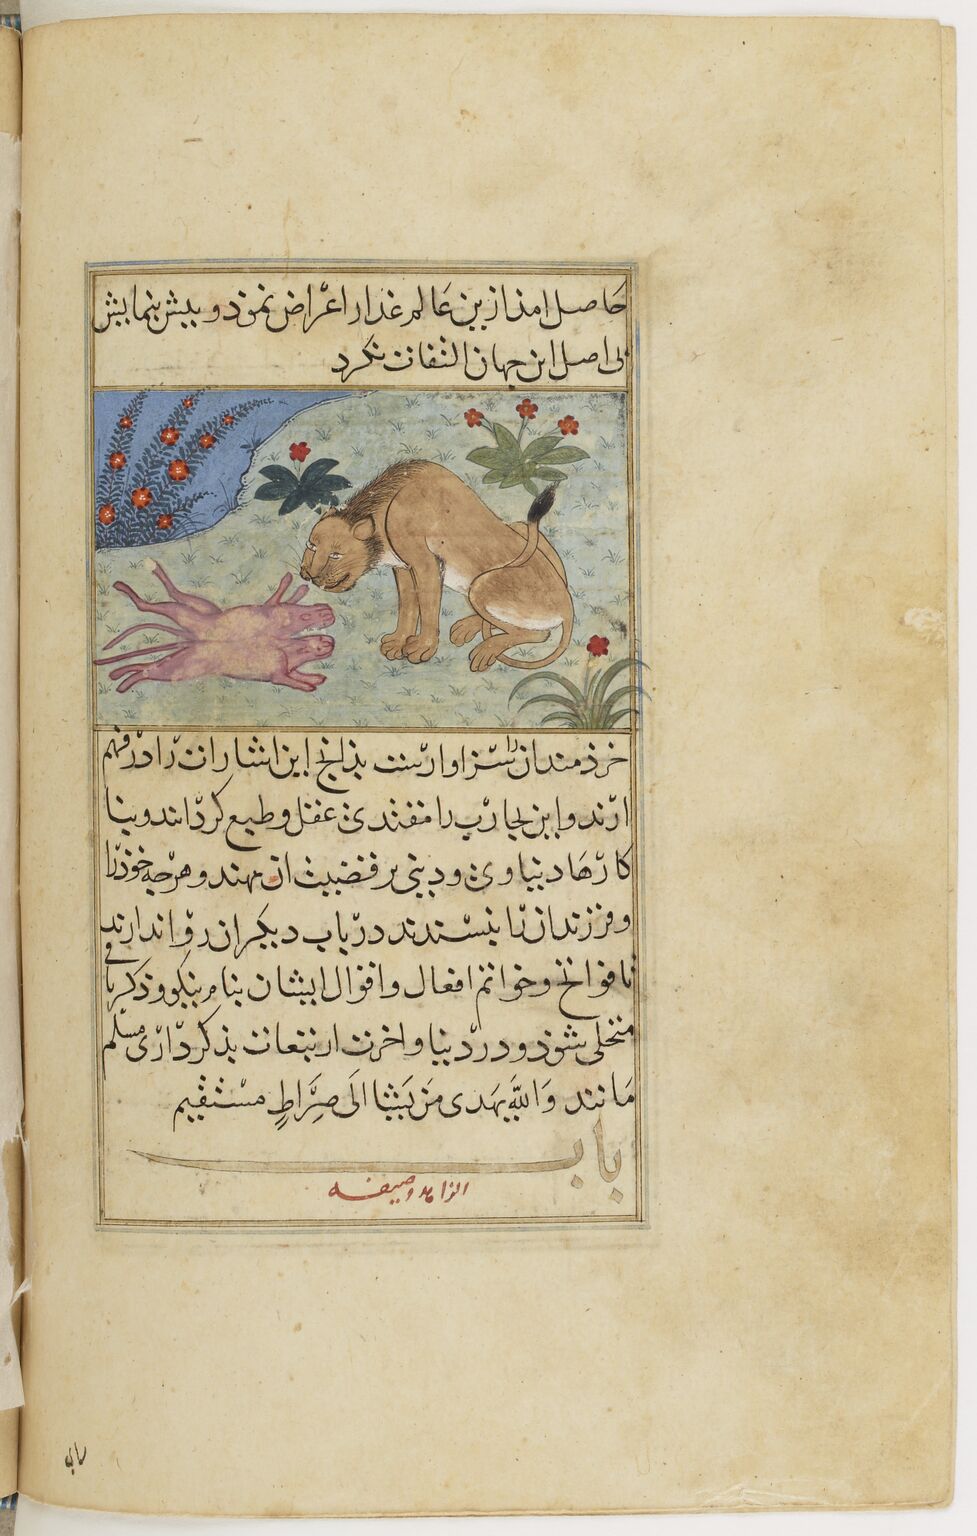 حاصل امذ ازین عالم غدار اعراض نموذ و بیش بنمایش
بی اصل این جهان التفات نکرد
خرذمندان را سزاوارست بذانچ این اشارات را در فهم
ارند و این تجارب را مقتدی عقل و طبع کردانند و بنا
کارها دنیاوی و دینی بر قضیت ان نهند و هرچه خوذ را
و فرزندان را نپسندند در باب دیکران روا ندارند
تا فواتح و خواتم افعال و اقوال ایشان بنام نیکو و ذکر باقی
متحلی شوذ و در دنیا و اخرت از تبعات بذکرداری مسلم
مانند وَاللَّهُ یَهدی مَن یَشا الَی صِرَاطٍ مستقیم
باب
الزاهد و ضیفه